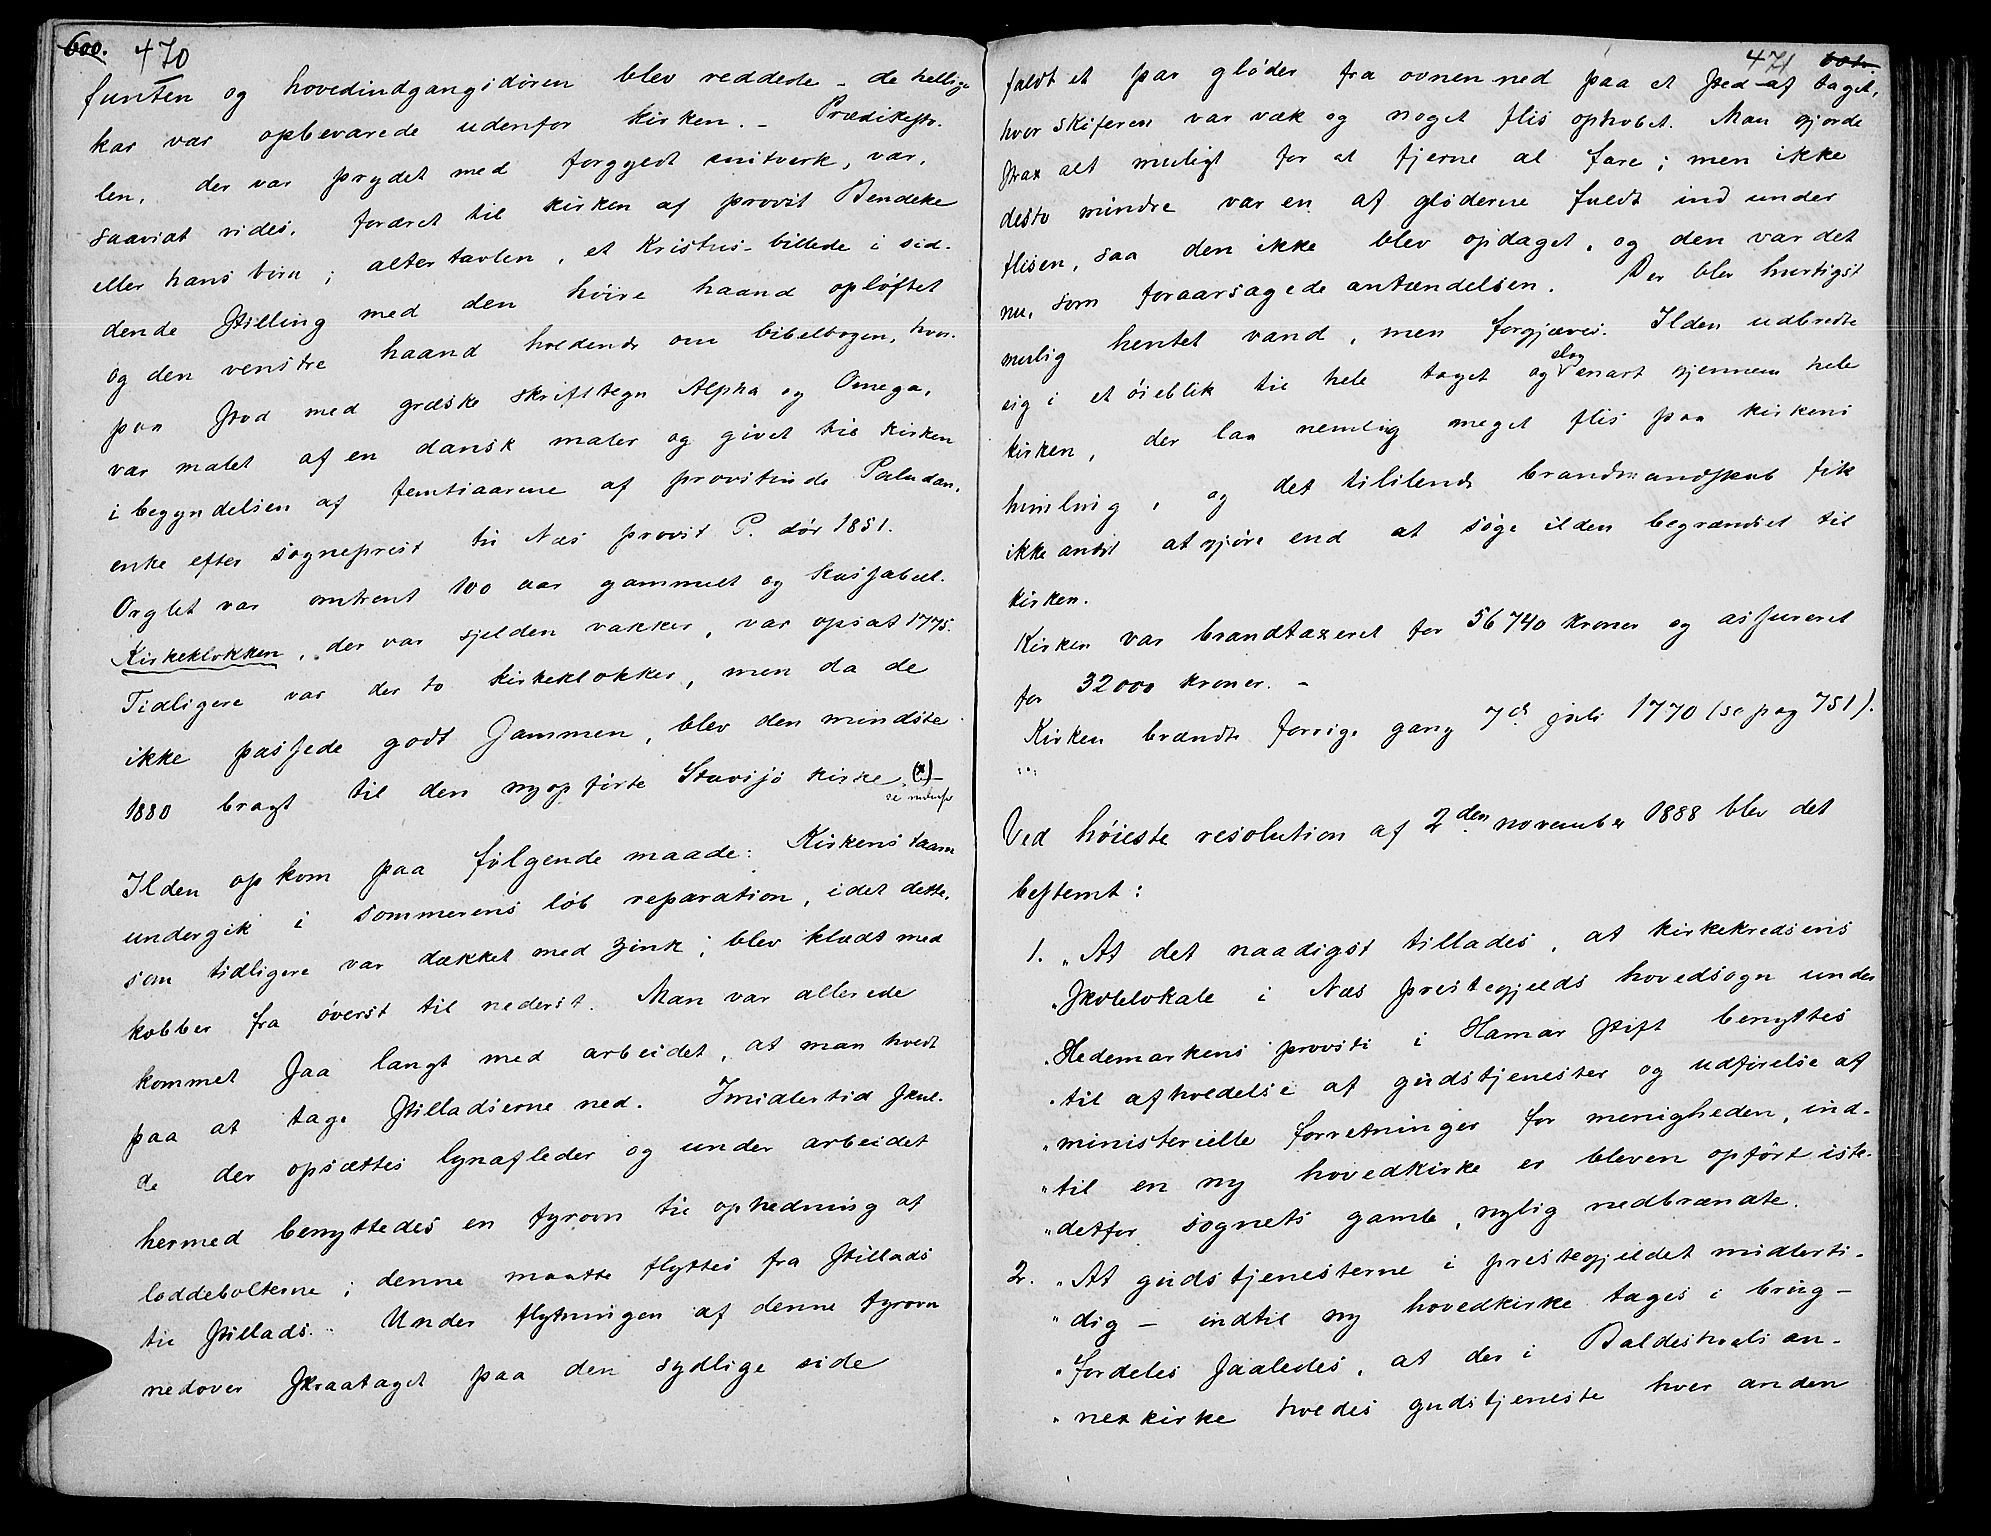 600. 470
funten og hovedindgangsdøren blev reddede – de hellige
kar var opbevarede udenfor kirken. – Prædikesto-
len, der var prydet med forgyldt snitverk, var,
saavidt vides, foræret til kirken af provst Bendeke
eller hans børn; altertavlen, et Kristus-billede i sid-
dende stilling med den høire haand opløftet
og den venstre haand holdende om bibelbogen, hvor-
paa stod med græske skrifttegn Alpha og Omega,
var malet af en dansk maler og givet til kirken
i begyndelsen af femtiaarene af provstinde Paludan,
enke efter sogneprest til Næs provst P. død 1851.
Orglet var omtrent 100 aar gammelt og kassabelt.
Kirkeklokken, der var sjelden vakker, var opsat 1775.
Tidligere var der to kirkeklokker, men da de
ikke passede godt sammen, blev den mindste
1880 bragt til den nyopførte Stavsjø kirke. (x) –
se nedenfor
Ilden opkom paa følgende maade: Kirkens taarn
undergik i sommerens løb reparation, idet dette,
som tidligere var dækket med zink, blev klædt med
kobber fra øverst til nederst. Man var allerede
kommet saa langt med arbeidet, at man holdt
paa at tage stilladserne ned. Imidlertid skul-
de der opsættes lynafleder og under arbeidet
hermed benyttedes en fyrovn til ophedning af
loddeboltene; denne maatte flyttes fra stillads
til stillads. Under flytningen af denne fyrovn
nedover skraataget paa den sydlige side
471 601.
faldt et par gløder fra ovnen ned paa et sted af taget,
hvor skiferen var væk og noget flis ophobet. Man gjorde
strax alt muligt for at fjerne al fare; men ikke
desto mindre var en af gløderne faldt ind under
flisen, saa den ikke blev opdaget, og den var det
nu, som foraarsagede antændelsen. Der blev hurtigst
mulig hentet vand, men forgjæves. Ilden udbredte
sig i et øieblik til hele taget og slog snart gjennem hele
kirken, der laa nemlig meget flis paa kirkens
himling, og det tililende brandmandskab fik
ikke andet at gjøre end at søge ilden begrændset til
kirken.
Kirken var brandtaxeret for 56740 kroner og assureret
for 32000 kroner. –
Kirken brændte forrige gang 7de juli 1770 (se pag 751).
Ved høieste resolution af 2den november 1888 blev det
bestemt:
1. „At det naadigst tillades, at kirkekredsens
„skolelokale i Næs prestegjelds hovedsogn under
„Hedemarkens provsti i Hamar stift benyttes
„til afholdelse af gudstjenester og udførelse af
„ministerielle forretninger for menigheden, ind-
„til en ny hovedkirke er bleven opført iste-
„detfor sognets gamle, nylig nedbrændte.
2. „At gudstjenesterne i prestegjeldet midlerti-
„dig – indtil ny hovedkirke tages i brug –
„fordeles saaledes, at der i Baldishols an-
„nexkirke holdes gudstjeneste hver anden